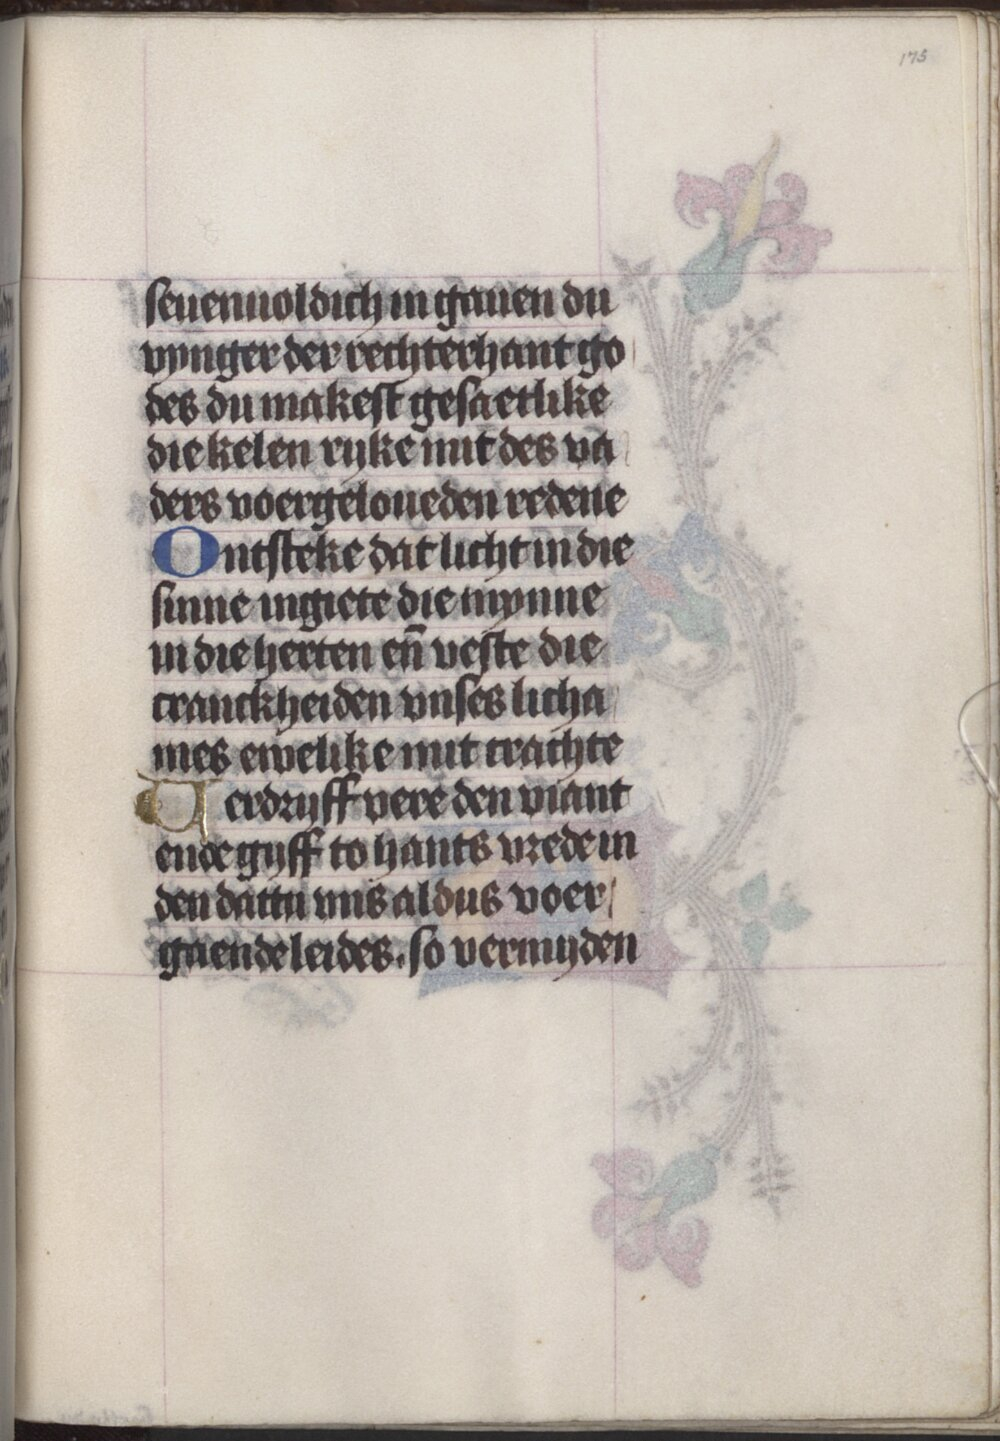 175
seuenuoldich in gauen du
vynger der rechterhant go
des du makest gesaetlike
die kelen ryke mit des va
ders voergeloueden redene
Ontsteke dat licht in die
sinne ingiete die mynne
in die herten en̄ veste die
cranckheiden vnses licha
mes ewelike mit crachte
Uerdryff vere den viant
ende gyff to hants vrede in
den dattu vns aldus voer
gaende leides. so vermyden